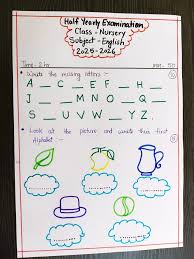 Half Yearly Examination
Class - Nursery
Subject - English
2025 - 2026
Time - 2 hr MM - 50
Write the missing letters :-
A _ C _ E _ G _ I
J _ _ M N O _ _ R
S _ U V V W Y Z
Look at the picture and write their first
Alphabet :-